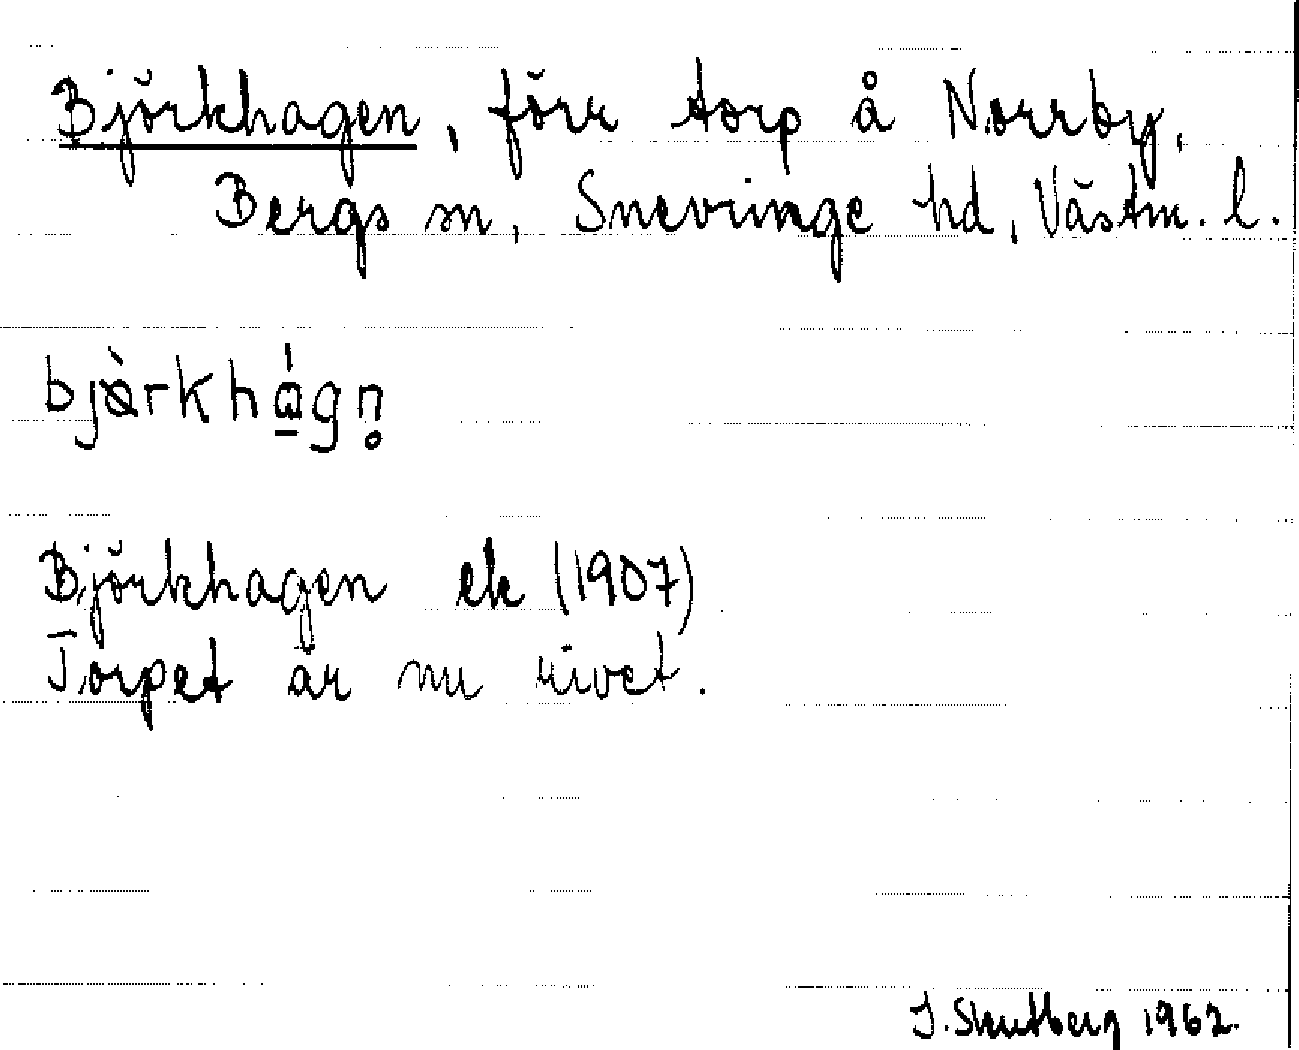 Björkhagen, förr torp å Norrby,
Bergs sn, Snevringe hd, Västm. l.
bjø̀rkhág̱n̥
Björkhagen ek (1907)
Torpet är nu rivet.
J. Skutberg 1962.